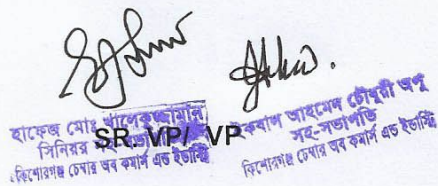 হাফেজ মোঃ খালেকুজ্জামান
সিনিয়র
কিশোরগঞ্জ চেম্বার অব কমার্স এন্ড ইন্ডাস্ট্রি
SR. VP/ VP
ইকবাল আহমেদ চৌধুরী অপু
সহ-সভাপতি
কিশোরগঞ্জ চেম্বার অব কমার্স এন্ড ইন্ডাস্ট্রি